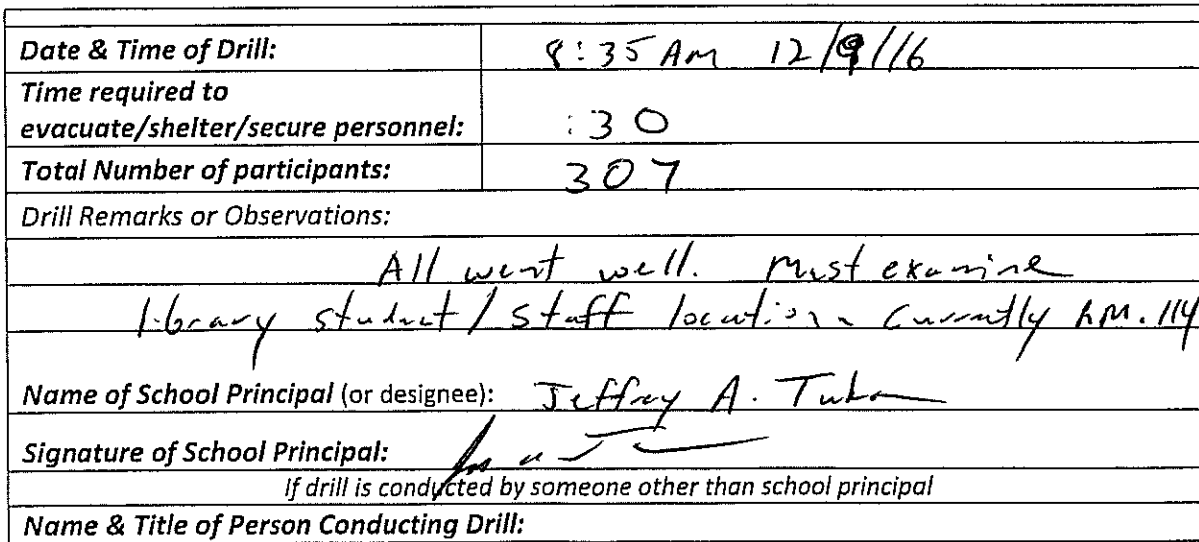 Date & Time of Drill: 8:35 AM 12/9/16
Time required to
evacuate/shelter/secure personnel: :30
Total Number of participants: 307
Drill Remarks or Observations:
All went well. Must examine
library student/staff location. Currently RM. 114
Name of School Principal (or designee): Jeffrey A.
Signature of School Principal:
If drill is conducted by someone other than school principal
Name & Title of Person Conducting Drill: